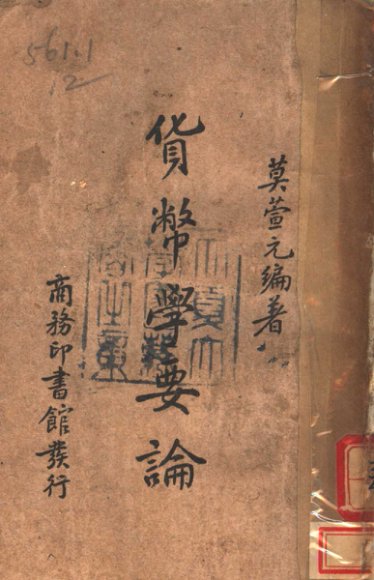 561.1
12
莫萱元編著
貨幣學要論
商務印書館發行